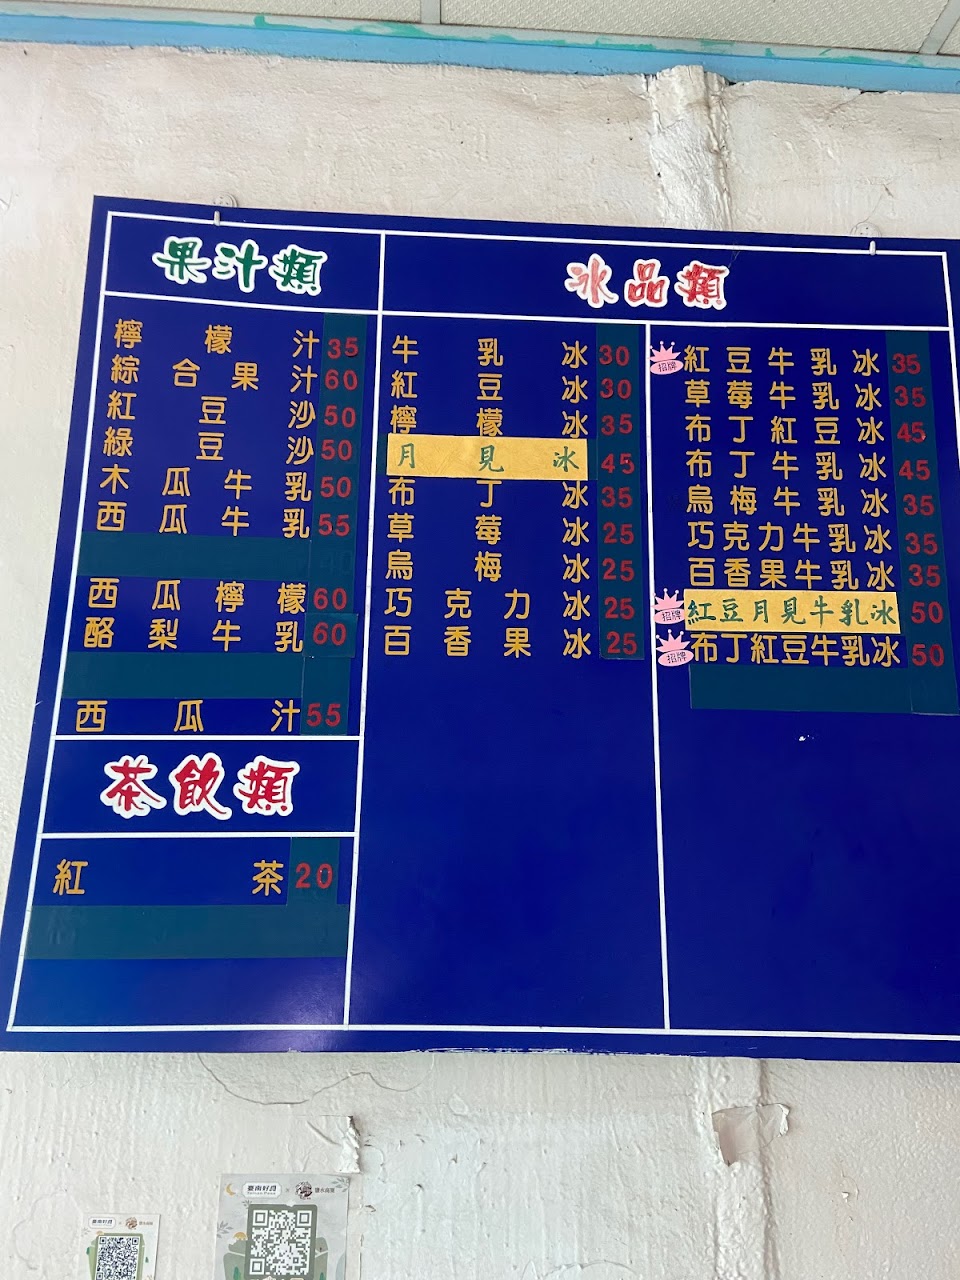 果汁類
檸檬汁 35
綜合果汁 60
紅豆沙 50
綠豆沙 50
木瓜牛乳 50
西瓜牛乳 55
西瓜檸檬 60
酪梨牛乳 60
西瓜汁 55
茶飲類
紅茶 20
冰品類
牛乳冰 30
紅豆冰 30
檸檬冰 35
月見冰 45
布丁冰 35
草莓冰 25
烏梅冰 25
巧克力冰 25
百香果冰 25
招牌 紅豆牛乳冰 35
草莓牛乳冰 35
布丁紅豆冰 45
布丁牛乳冰 45
烏梅牛乳冰 35
巧克力牛乳冰 35
百香果牛乳冰 35
招牌 紅豆月見牛乳冰 50
招牌 布丁紅豆牛乳冰 50